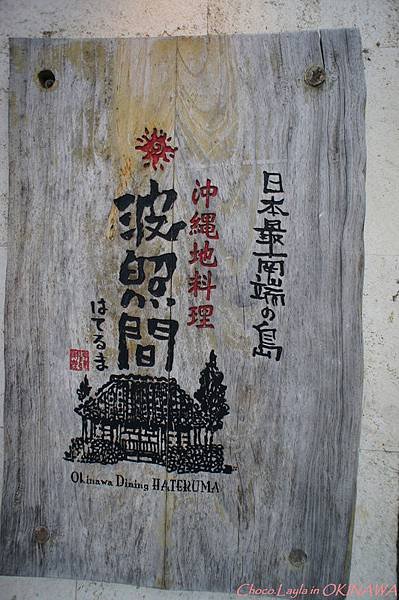 日本最南端の島
沖縄地料理
波照間
はてるま
Okinawa Dining HATERUMA
Choco.Layla in OKINAWA